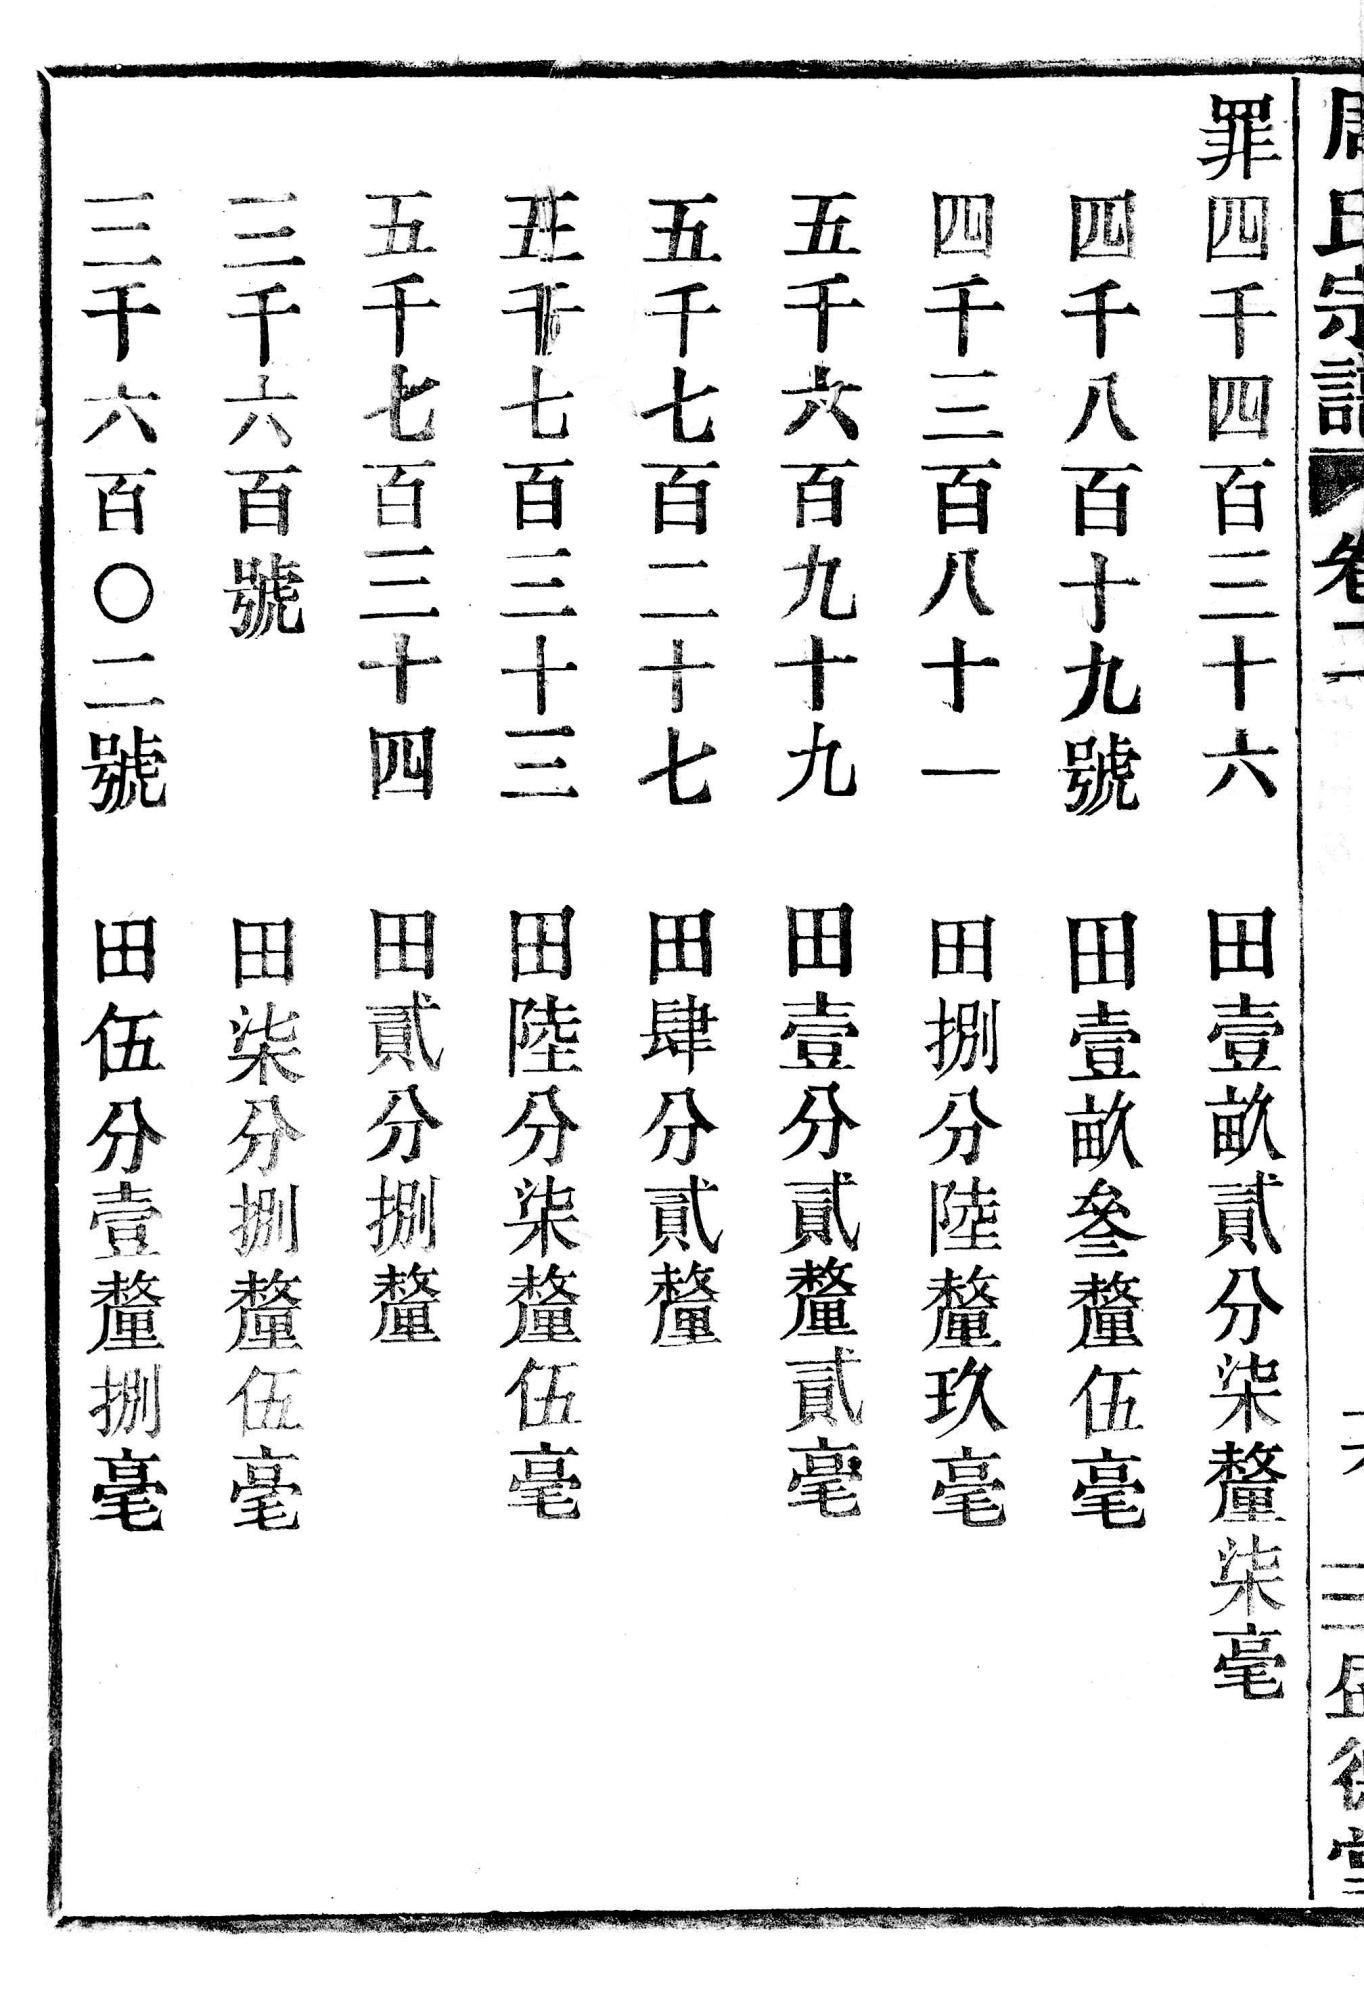 周氏宗譜 卷二 十六 三 盛德堂
罪四千四百三十六 田壹畝貳分柒釐柒毫
四千八百十九號 田壹畝叄釐伍毫
四千三百八十一 田捌分陸釐玖毫
五千六百九十九 田壹分貳釐貳毫
五千七百二十七 田肆分貳釐
五千七百三十三 田陸分柒釐伍毫
五千七百三十四 田貳分捌釐
三千六百號 田柒分捌釐伍毫
三千六百〇二號 田伍分壹釐捌毫